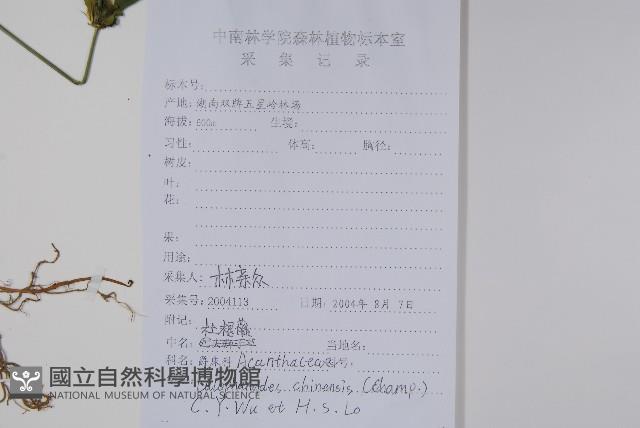 中南林学院森林植物标本室
采集记录
标本号:
产地: 湖南双牌五星岭林场
海拔: 600m 生境:
习性: 体高: 胸径:
树皮:
叶:
花:
果:
用途:
采集人: 林亲众
采集号: 2004113 日期: 2004年 8月 7日
附记:
中名: 当地名:
科名: 爵床科 Acanthaceae
chinensis (Champ.)
C. Y. Wu et H. S. Lo
國立自然科學博物館
NATIONAL MUSEUM OF NATURAL SCIENCE